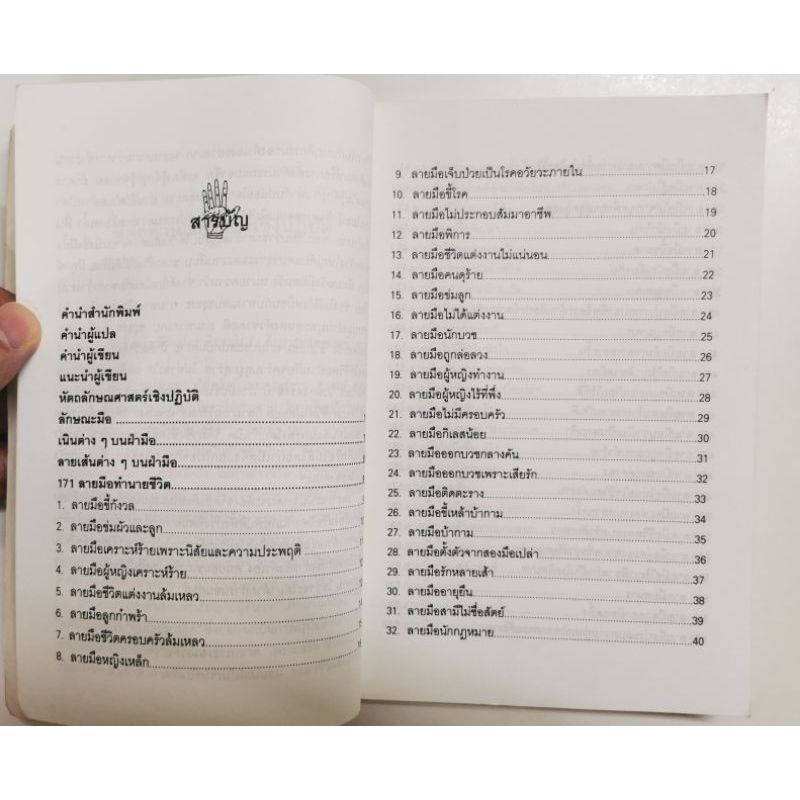 สารบัญ
คำนำสำนักพิมพ์
คำนำผู้แปล
คำนำผู้เขียน
แนะนำผู้เขียน
หัตถลักษณศาสตร์เชิงปฏิบัติ
ลักษณะมือ
เนินต่าง ๆ บนฝ่ามือ
ลายเส้นต่าง ๆ บนฝ่ามือ
171 ลายมือทำนายชีวิต
1. ลายมือขี้กังวล
2. ลายมือข่มผัวและลูก
3. ลายมือเคราะห์ร้ายเพราะนิสัยและความประพฤติ
4. ลายมือผู้หญิงเคราะห์ร้าย
5. ลายมือชีวิตแต่งงานล้มเหลว
6. ลายมือลูกกำพร้า
7. ลายมือชีวิตครอบครัวล้มเหลว
8. ลายมือหญิงเหล็ก
9. ลายมือเจ็บป่วยเป็นโรคอวัยวะภายใน 17
10. ลายมือขี้โรค 18
11. ลายมือไม่ประกอบสัมมาอาชีพ 19
12. ลายมือพิการ 20
13. ลายมือชีวิตแต่งงานไม่แน่นอน 21
14. ลายมือคนดุร้าย 22
15. ลายมือข่มลูก 23
16. ลายมือไม่ได้แต่งงาน 24
17. ลายมือนักบวช 25
18. ลายมือถูกล่อลวง 26
19. ลายมือผู้หญิงทำงาน 27
20. ลายมือผู้หญิงไร้ที่พึ่ง 28
21. ลายมือไม่มีครอบครัว 29
22. ลายมือกิเลสน้อย 30
23. ลายมือออกบวชกลางคัน 31
24. ลายมือออกบวชเพราะเสียรัก 32
25. ลายมือติดตะราง 33
26. ลายมือขี้เหล้าบ้ากาม 34
27. ลายมือบ้ากาม 35
28. ลายมือตั้งตัวจากสองมือเปล่า 36
29. ลายมือรักหลายเส้า 37
30. ลายมืออายุยืน 38
31. ลายมือสามีไม่ซื่อสัตย์ 39
32. ลายมือนักกฎหมาย 40